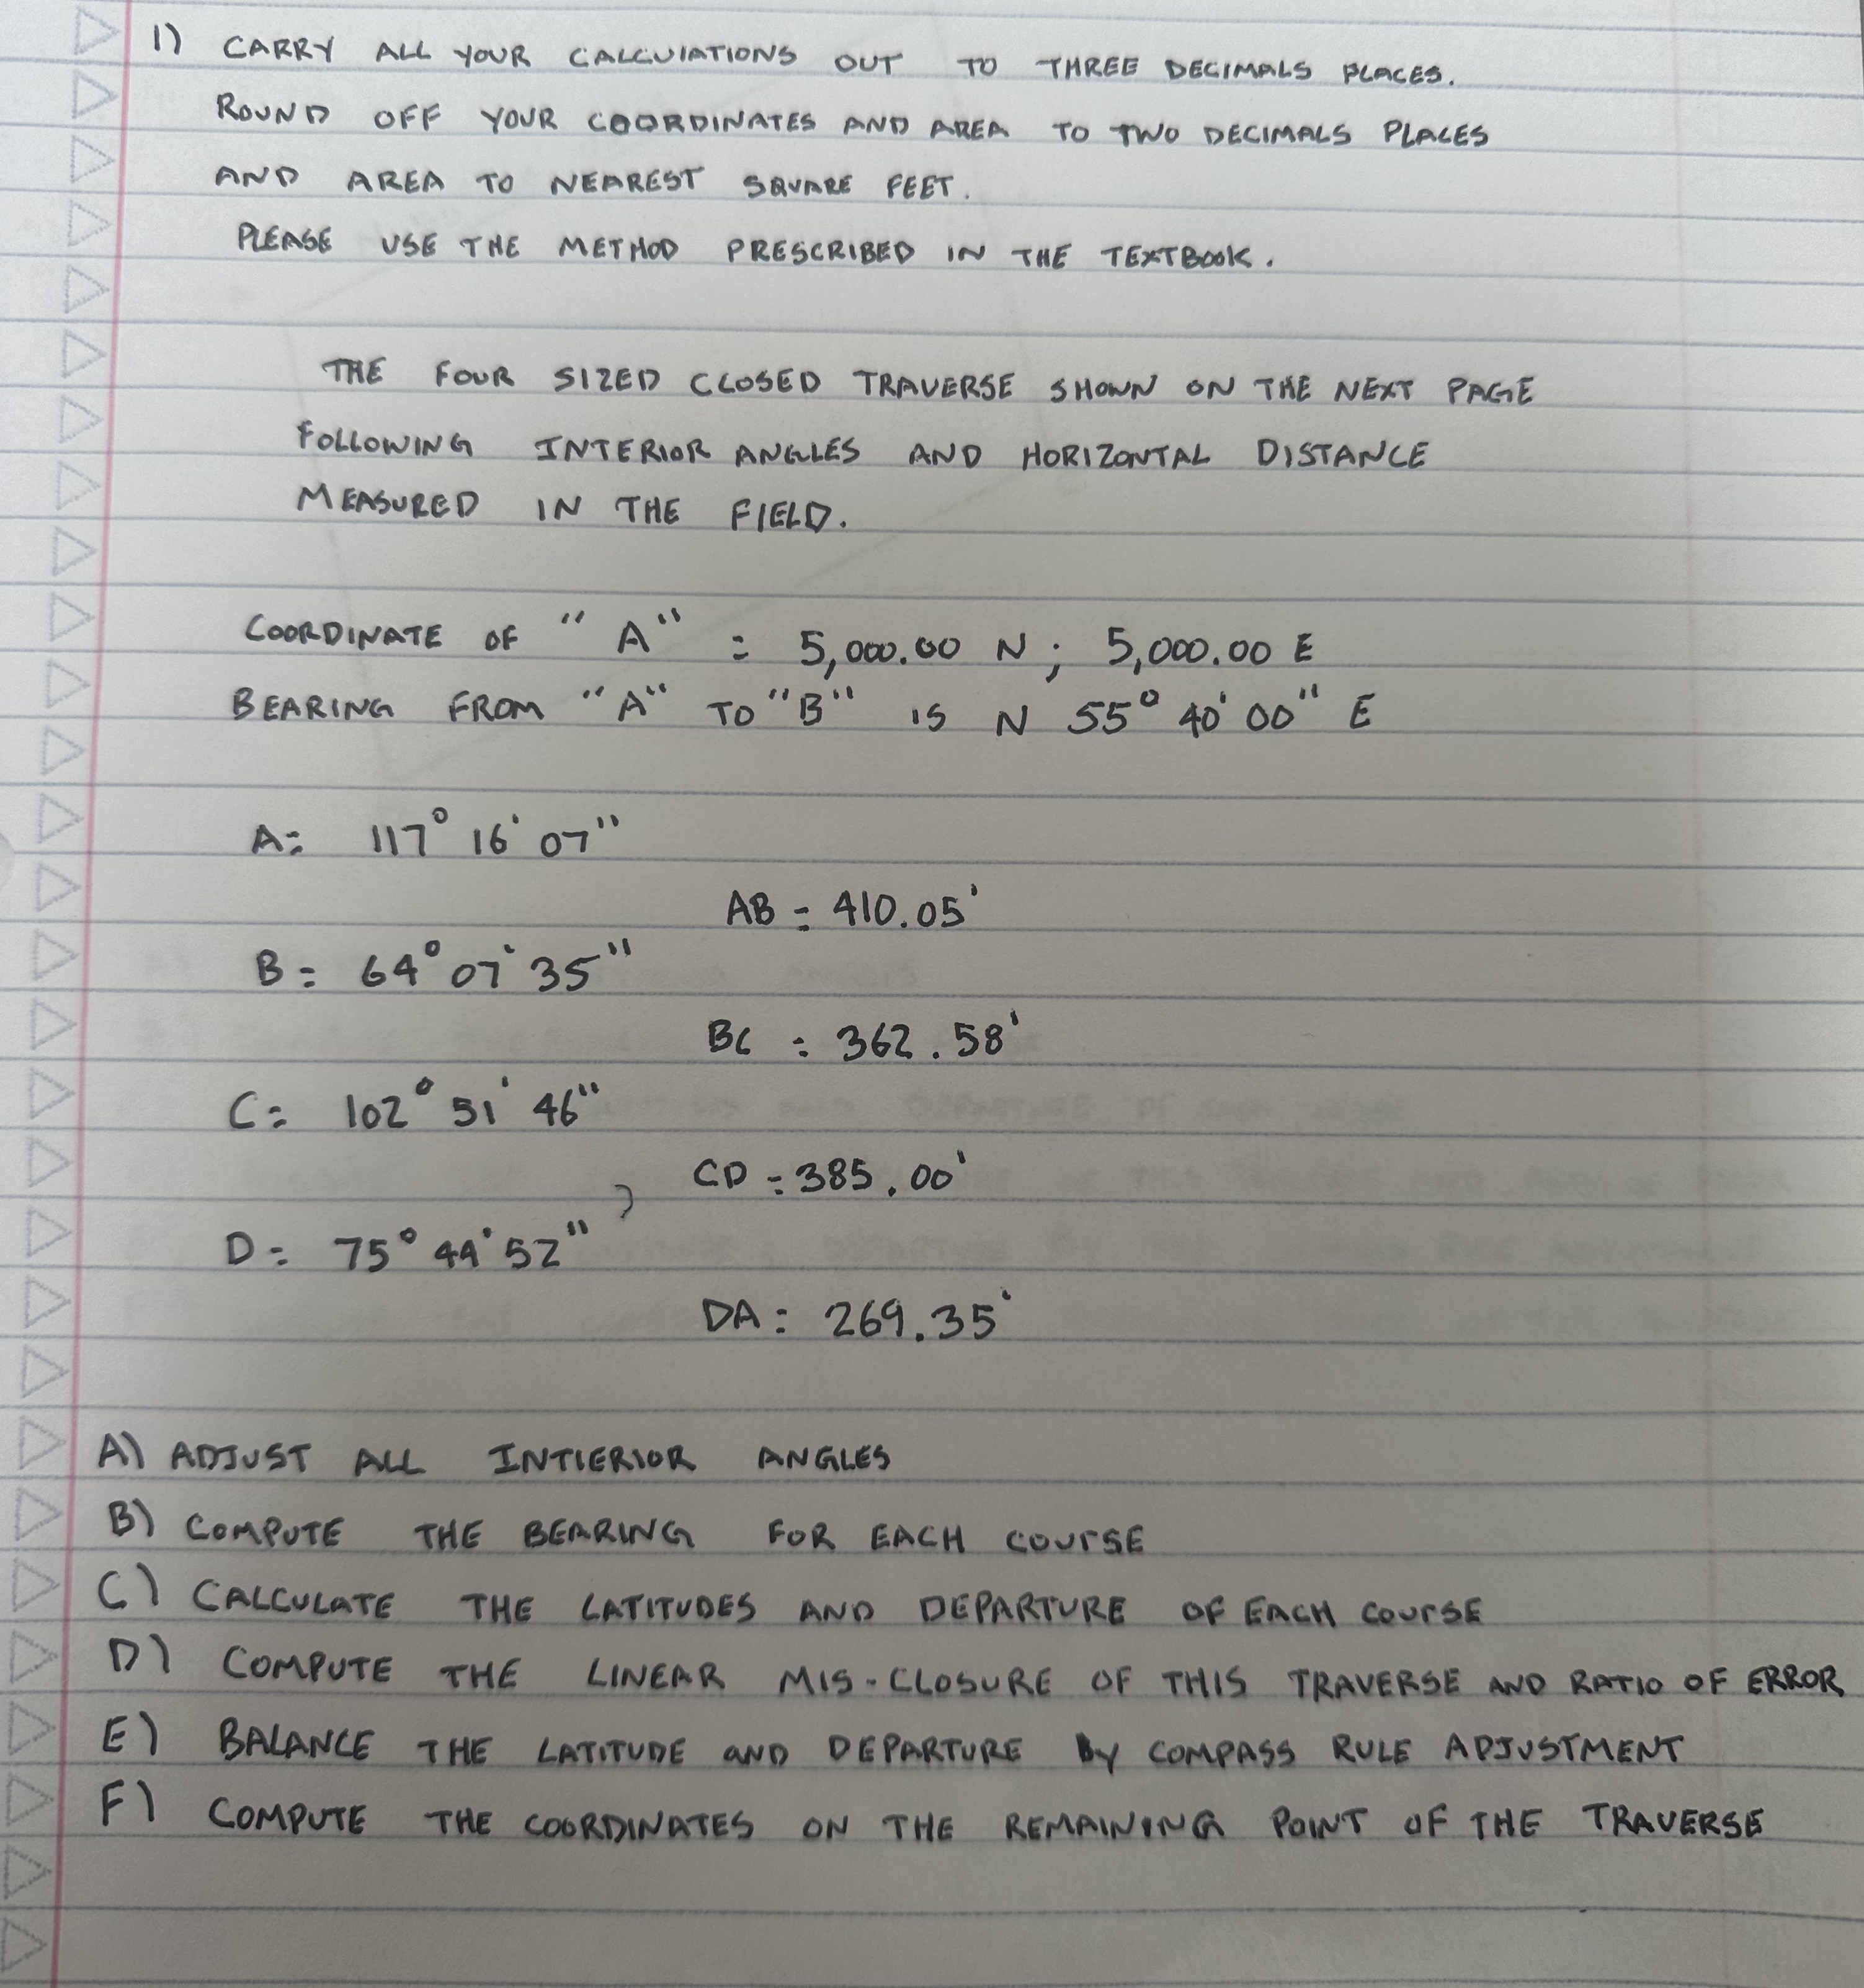 1) CARRY ALL YOUR CALCULATIONS OUT TO THREE DECIMALS PLACES.
ROUND OFF YOUR COORDINATES AND AREA TO TWO DECIMALS PLACES
AND AREA TO NEAREST SQUARE FEET.
PLEASE USE THE METHOD PRESCRIBED IN THE TEXTBOOK.
THE FOUR SIZED CLOSED TRAVERSE SHOWN ON THE NEXT PAGE
FOLLOWING INTERIOR ANGLES AND HORIZONTAL DISTANCE
MEASURED IN THE FIELD.
COORDINATE OF "A" = 5,000.00 N; 5,000.00 E
BEARING FROM "A" TO "B" IS N 55° 40' 00" E
A= 117° 16' 07"
AB = 410.05'
B= 64° 07' 35"
BC = 362.58'
C= 102° 51' 46"
CD = 385.00'
D= 75° 44' 52"
DA= 269.35'
A) ADJUST ALL INTIERIOR ANGLES
B) COMPUTE THE BEARING FOR EACH COURSE
C) CALCULATE THE LATITUDES AND DEPARTURE OF EACH COURSE
D) COMPUTE THE LINEAR MIS-CLOSURE OF THIS TRAVERSE AND RATIO OF ERROR
E) BALANCE THE LATITUDE AND DEPARTURE BY COMPASS RULE ADJUSTMENT
F) COMPUTE THE COORDINATES ON THE REMAINING POINT OF THE TRAVERSE